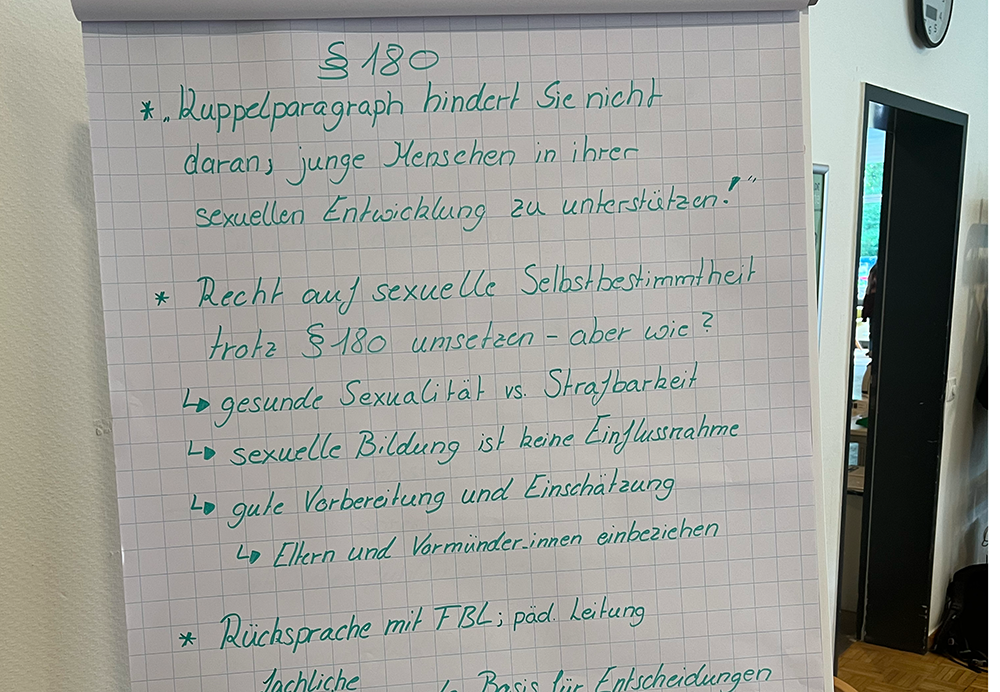 § 180
* „Kuppelparagraph hindert Sie nicht
daran, junge Menschen in ihrer
sexuellen Entwicklung zu unterstützen!"
* Recht auf sexuelle Selbstbestimmtheit
trotz § 180 umsetzen - aber wie?
↳ gesunde Sexualität vs. Strafbarkeit
↳ sexuelle Bildung ist keine Einflussnahme
↳ gute Vorbereitung und Einschätzung
↳ Eltern und Vormünder_innen einbeziehen
* Rücksprache mit FBL; päd. Leitung
fachliche ↳ Basis für Entscheidungen